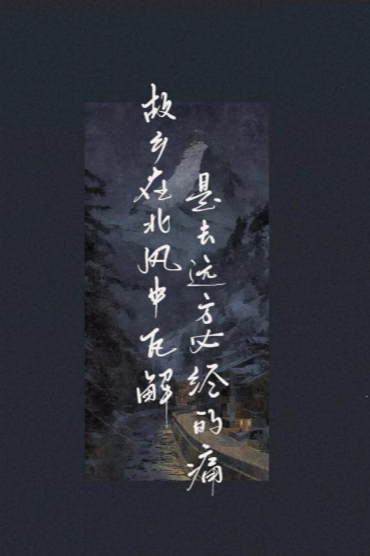 故乡在北风中瓦解
是去远方必经的痛